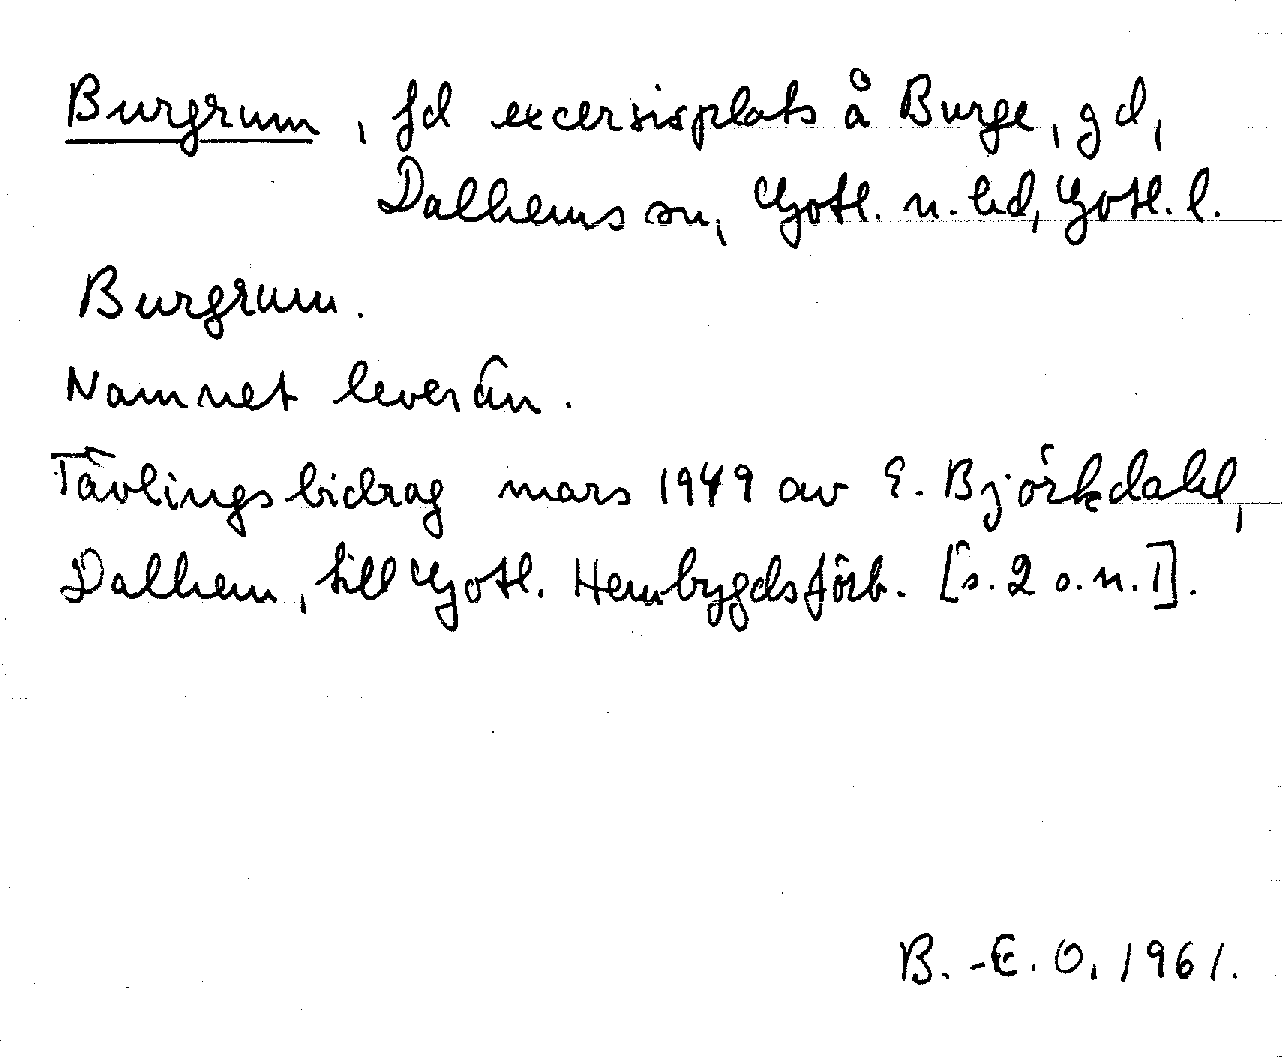 Burgrum, fd excersisplats å Burge, gd,
Dalhems sn, Gotl. n. hd, Gotl. l.
Burgrum.
Namnet lever än.
Tävlingsbidrag mars 1949 av E. Björkdahl,
Dalhem, till Gotl. Hembygdsförb. [s. 2 o. n. I].
B.-E. O. 1961.